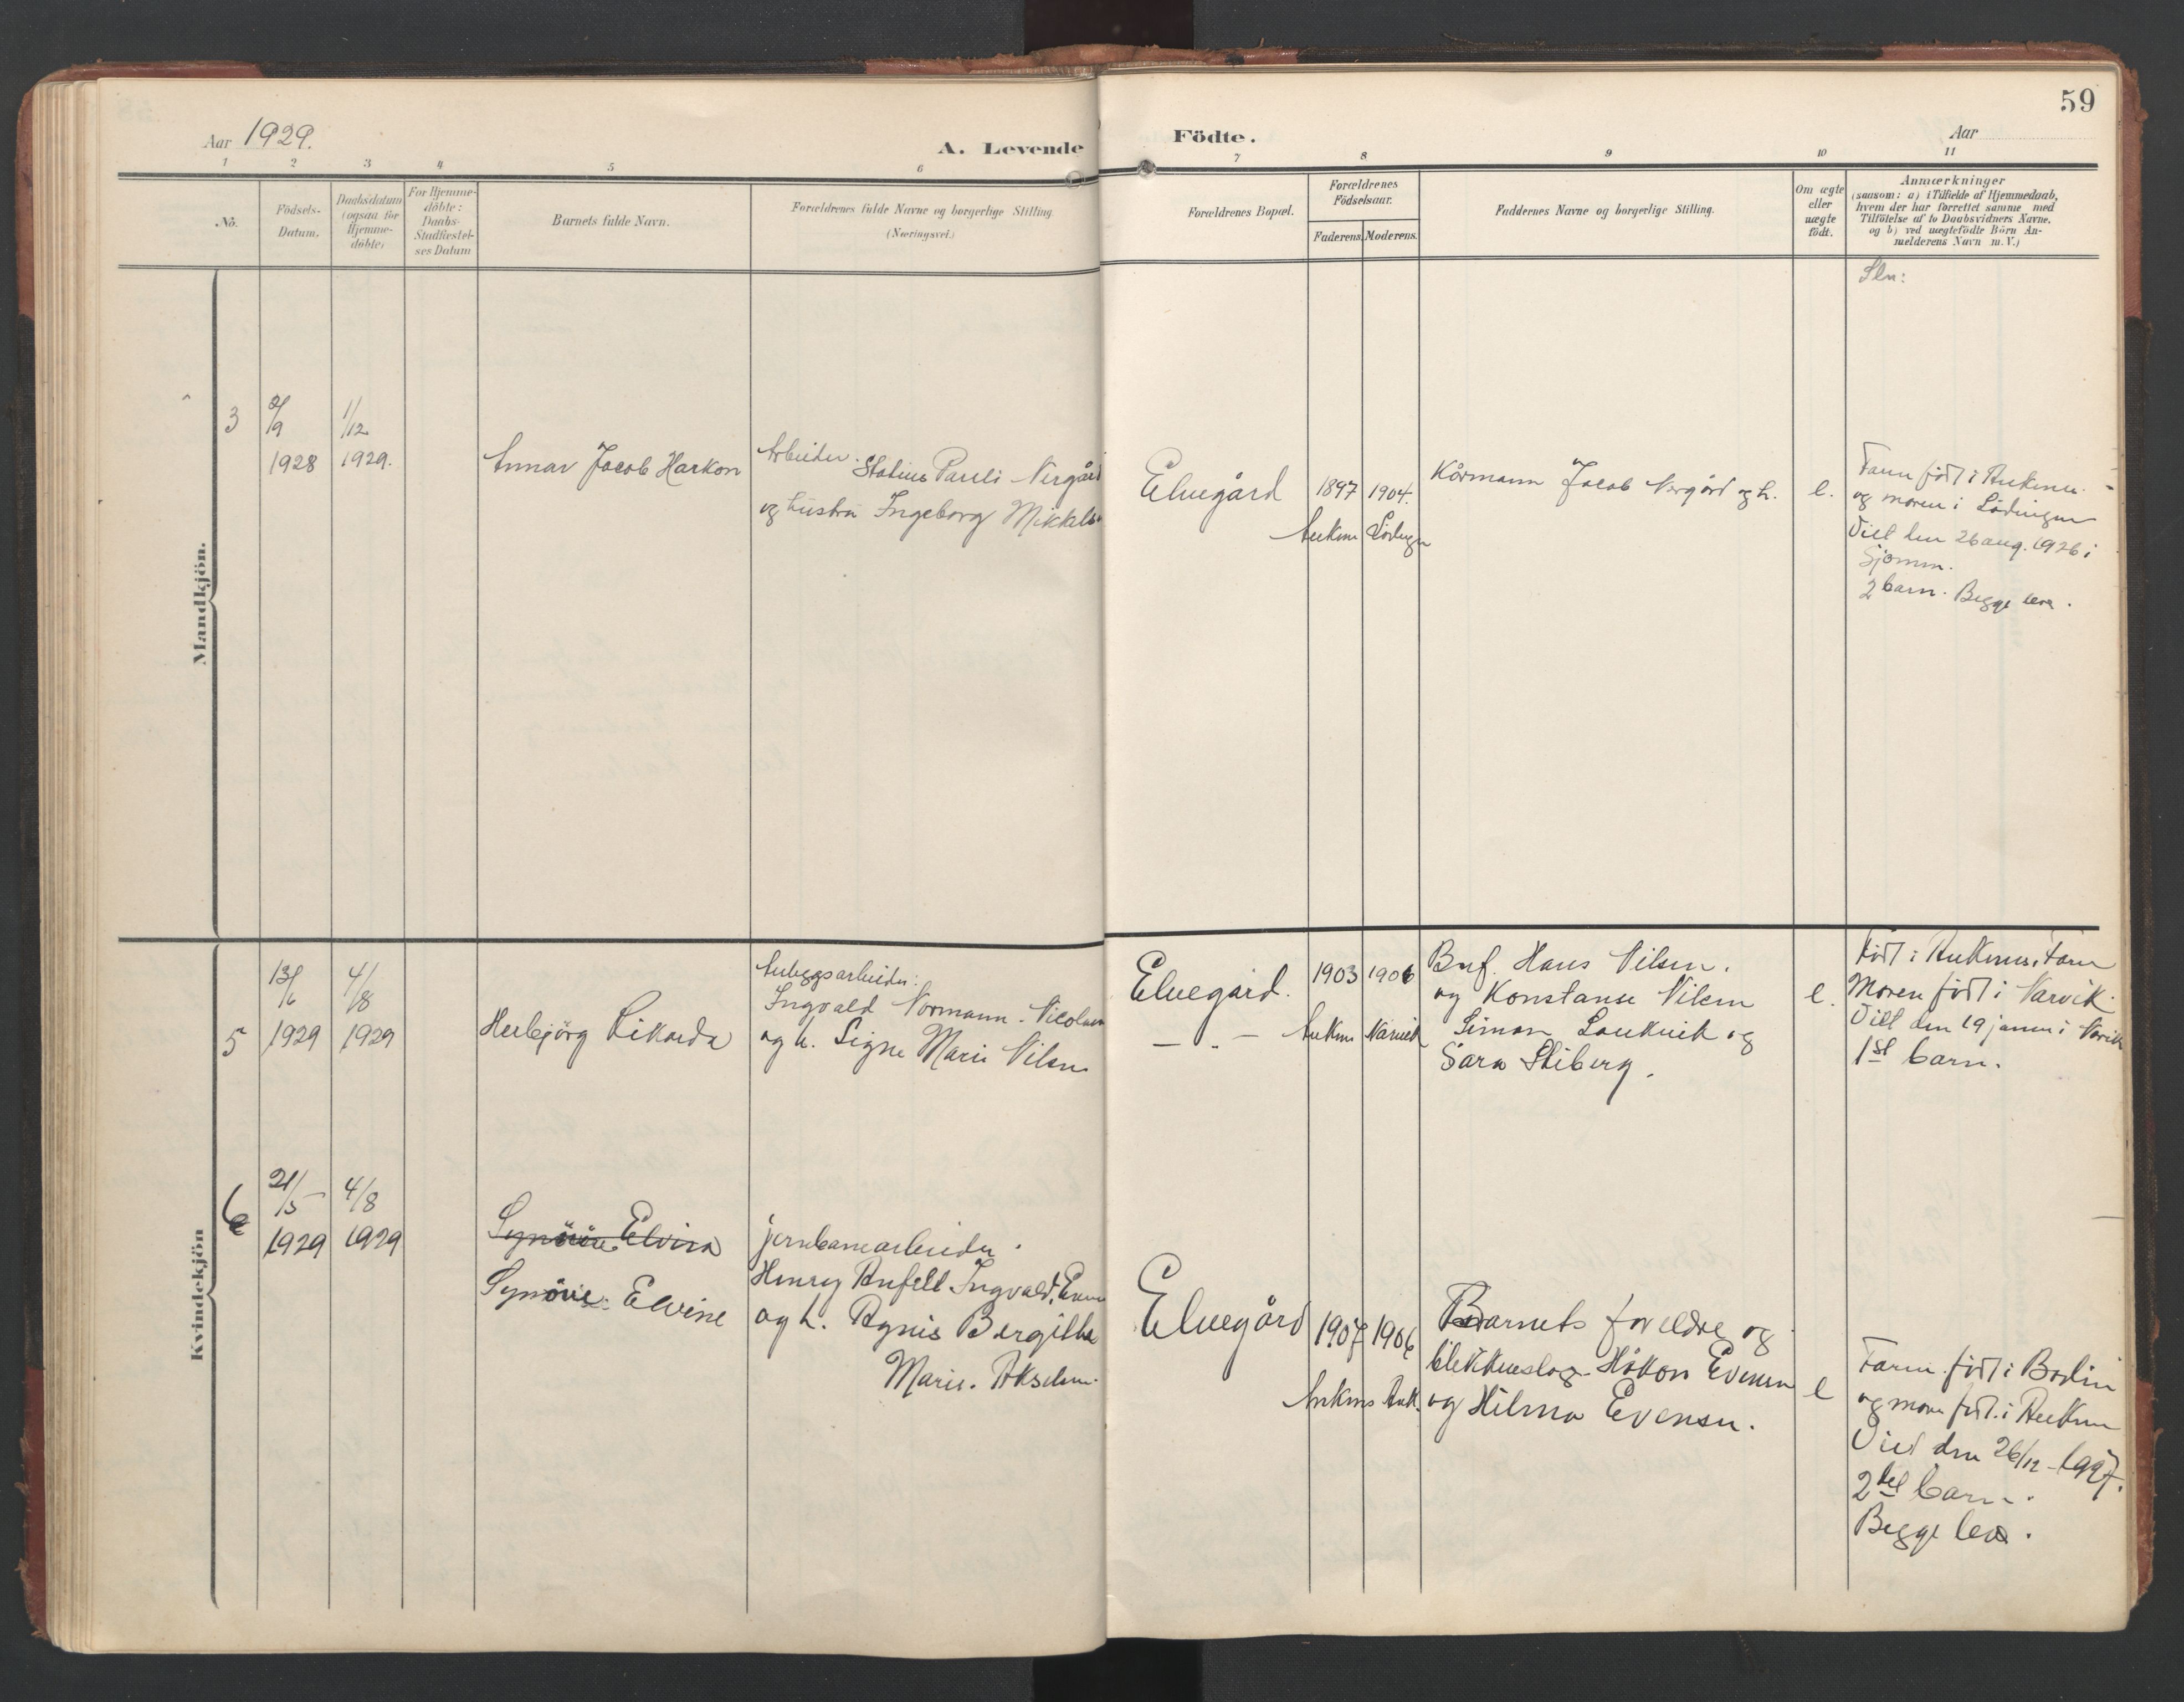 59
Aar 1929.
A. Levende Födte.
Aar
1 2 3 4 5 6 7 8 9 10 11
No.
Födsels-
Datum.
Daabsdatum
(ogsaa for
Hjemme-
döbte)
For Hjemme-
döbte:
Daabs-
Stadfæstel-
ses Datum
Barnets fulde Navn.
Forældrenes fulde Navne og borgerlige Stilling.
(Næringsvei.)
Forældrenes Bopæl.
Forældrenes
Födselsaar.
Faderens. Moderens.
Faddernes Navne og borgerlige Stilling.
Om ægte
eller
uægte
födt.
Anmærkninger
(saasom: a) i Tilfælde af Hjemmedaab,
hvem der har forrettet samme med
Tilföielse af to Daabsvidners Navne,
og b) ved uægtefödte Börn An-
melderens Navn m. V.)
Mandkjön.
3
1/12
1928
1929.
Annar Jacob Harkon
Arbeider. Statius Pauli Nergård
og hustru Ingeborg Mikkels
Elvegård
1897
1904.
Ankenes
Lödingen
Kårmann Jacob Nergård og h.
e.
Faren född i Ankenes
og moren i Lödingen
Viet den 26 aug. 1926 i
Sjomm.
2 barn. Begge lever.
Kvindekjön
5
13/6
1929
4/8
1929
Herbjörg Rikarda
Anleggsarbeider:
Ingvald Normann Nicolaisen
og h. Signe Marie Nilsen
Elvegård.
— . —
1903
1906
Ankenes
Narvik
Bruf. Hans Nilsen.
og Konstanse Nilsen
Simon Leukvik og
Sara Stiberg.
e.
Född i Ankenes, Faren
Moren född i Narvik.
Viet den 19 januar i Narvik
1st barn.
6
21/5
1929
4/8
1929
Synöve Elvira
Synöve Elvine
jernbanearbeider.
Henry Anfelt Ingvald Evensen
og h. Agnes Bergitha
Marie. Akselsen.
Elvegård
1907
1906
Ankenes
Ank.
Barnets foreldre og
blikkenslag. Håkon Evensen
og Hilma Evensen.
e
Faren född i Bodin
og moren född i Ankenes
Viet den 26/12 - 1927.
2det barn.
Begge lever.